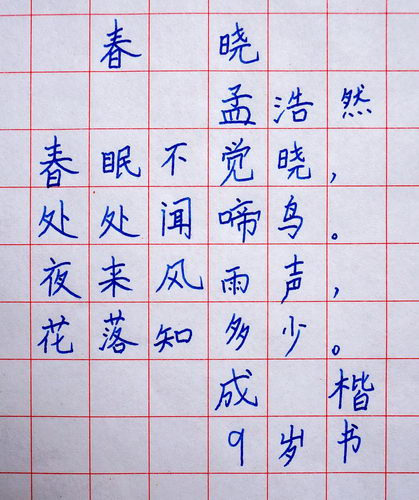 春晓
孟浩然
春眠不觉晓，
处处闻啼鸟。
夜来风雨声，
花落知多少。
成楷
9岁书